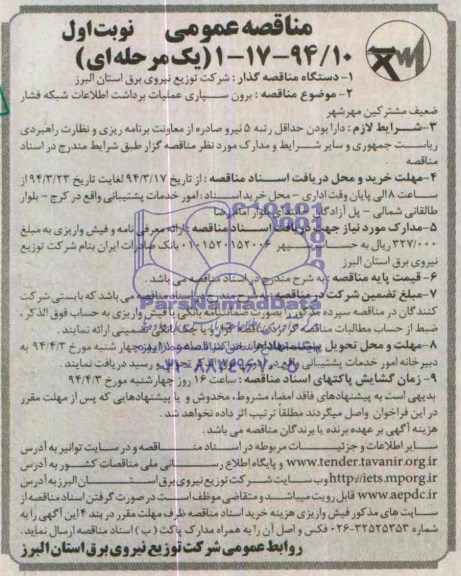 مناقصه عمومی نوبت اول
۱-۱۷-۹۴/۱۰ (یک مرحله ای)
۱- دستگاه مناقصه گذار : شرکت توزیع نیروی برق استان البرز
۲- موضوع مناقصه : برون سپاری عملیات برداشت اطلاعات شبکه فشار
ضعیف مشترکین مهرشهر
۳- شرایط لازم : دارا بودن حداقل رتبه ۵ نیرو صادره از معاونت برنامه ریزی و نظارت راهبردی
ریاست جمهوری و سایر شرایط و مدارک مورد نظر مناقصه گزار طبق شرایط مندرج در اسناد
مناقصه
۴- مهلت خرید و محل دریافت اسناد مناقصه : از تاریخ ۹۴/۳/۱۷ لغایت تاریخ ۹۴/۳/۲۳ از
ساعت ۸ الی پایان وقت اداری - محل خرید اسناد : امور خدمات پشتیبانی واقع در کرج - بلوار
طالقانی شمالی - پل آزادگان - ابتدای بلوار امام رضا
۵- مدارک مورد نیاز جهت دریافت اسناد مناقصه : ارائه معرفی نامه و فیش واریزی به مبلغ
۳۲۷/۰۰۰ ریال به حساب سپهر ۰۱۰۱۵۲۰۱۵۲۰۰۶ بانک صادرات ایران بنام شرکت توزیع
نیروی برق استان البرز
۶- قیمت پایه مناقصه : به شرح مندرج در اسناد مناقصه می باشد .
۷- مبلغ تضمین شرکت در مناقصه : اسناد مناقصه می باشد که بایستی شرکت
کنندگان در مناقصه سپرده مذکور را بصورت ضمانتنامه بانکی یا فیش واریزی به حساب فوق الذکر ،
ضبط از حساب مطالبات مناقصه گر نزد مناقصه گزار و یا چک بانکی تضمینی ارائه نمایند .
۸- مهلت و محل تحویل پیشنهادها : روز چهار شنبه مورخ ۹۴/۴/۳ به
دبیرخانه امور خدمات پشتیبانی واقع در تحویل و رسید دریافت نمایند .
۹- زمان گشایش پاکتهای اسناد مناقصه : ساعت ۱۶ روز چهارشنبه مورخ ۹۴/۴/۳
بدیهی است به پیشنهادهای فاقد امضاء مشروط، مخدوش و یا پیشنهادهایی که پس از مهلت مقرر
در این فراخوان واصل میگردند مطلقاً ترتیب اثر داده نخواهد شد .
هزینه آگهی بر عهده برنده یا برندگان مناقصه می باشد .
سایر اطلاعات و جزئیات مربوطه در اسناد مناقصه و در سایت توانیر به آدرس
www.tender.tavanir.org.ir و پایگاه اطلاع رسانی ملی مناقصات کشور به آدرس
http://iets.mporg.ir وب سایت شرکت توزیع نیروی برق استان البرز به آدرس
www.aepdc.ir قابل رویت میباشد و متقاضی موظف است در صورت گرفتن اسناد مناقصه از
سایت های مذکور فیش واریزی هزینه خرید اسناد مناقصه ظرف مهلت مقرر در بند ۴ این آگهی را به
شماره ۳۲۵۲۵۳۵۳-۰۲۶ فکس و اصل آن را به همراه مدارک پاکت (ب) اسناد مناقصه ارسال نماید.
روابط عمومی شرکت توزیع نیروی برق استان البرز
ParsNamadData
۰۲۱-۸۸۳۴۹۶۷۰-۵